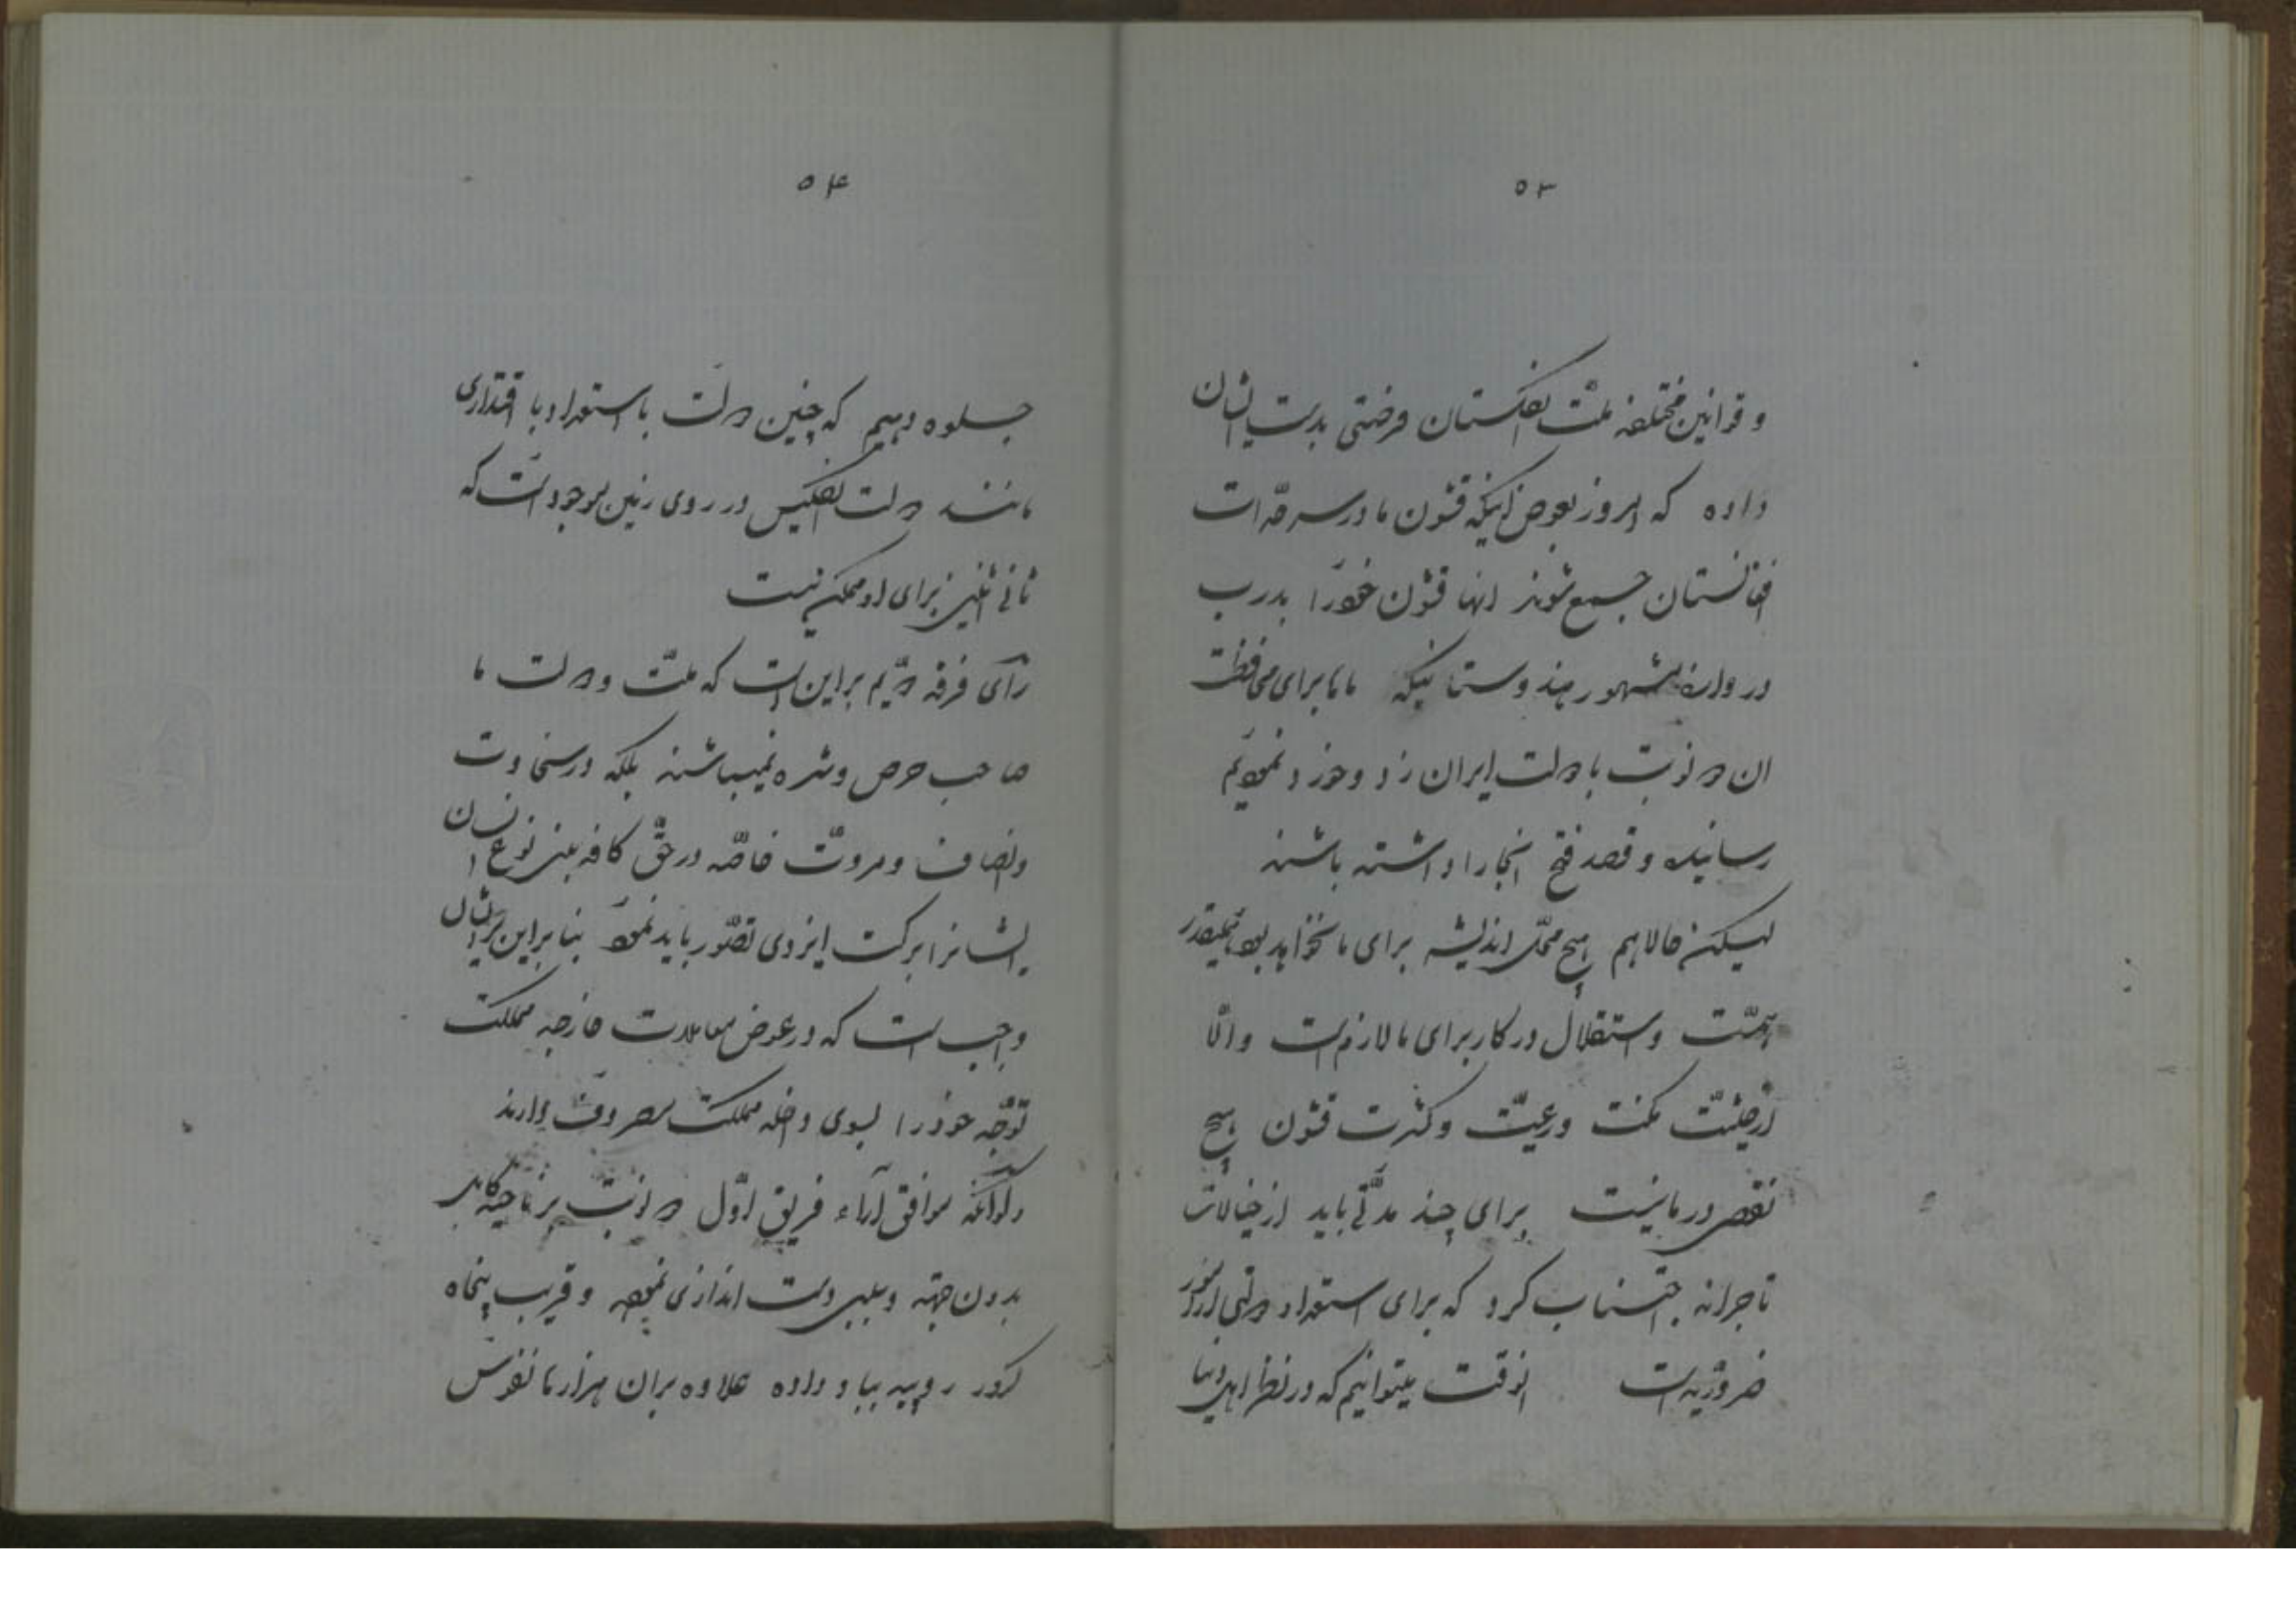 ۵۳
و قوانین مختلفه ملت انگلستان فرصتی بدست ایشان
داده که امروز بعوض اینکه قشون ما در سرحدات
افغانستان جمع شوند انها قشون خود را بدرب
دروازه مشهور هندوستانیکه ماها برای محافظت
ان دو نوبت با دولت ایران زد و خورد نمودیم
رسانیده و قصد فتح انجا را داشته باشند
لیکن حالا هم هیچ محل اندیشه برای ما نخواهد بود همینقدر
همّت و استقلال در کار برای ما لازم است والّا
از حیثیّت مکنت و رعیّت و کثرت قشون هیچ
نقصی در ما نیست برای چند مدّتی باید از خیالات
تاجرانه اجتناب کرد که برای استعداد دولتی از امور
ضروریه است انوقت میتوانیم که در نظر اهل دنیا
۵۴
جلوه دهیم که چنین دولت با استعداد و با اقتداری
مانند دولت انگلیس در روی زمین موجود است که
ثانی اثنین برای او ممکن نیست
رآی فرقه دوّیم بر این است که ملّت و دولت ما
صاحب حرص و شره نمیباشند بلکه در سخاوت
و انصاف و مروّت خاصّه در حقّ کافه بنی نوع انسان
ایشانرا برکت ایزدی تصّور باید نمود بنابراین برایشان
واجب است که در عوض معاملات خارجه مملکت
توجّه خود را بسوی داخله مملکت مصروف دارند
موافق آراء فریق اوّل دو نوبت بر ناحیه کابل
بدون جهته و سببی دست اندازی نموده و قریب پنجاه
کرور روپیه بباد داده علاوه بران هزارها نفوس